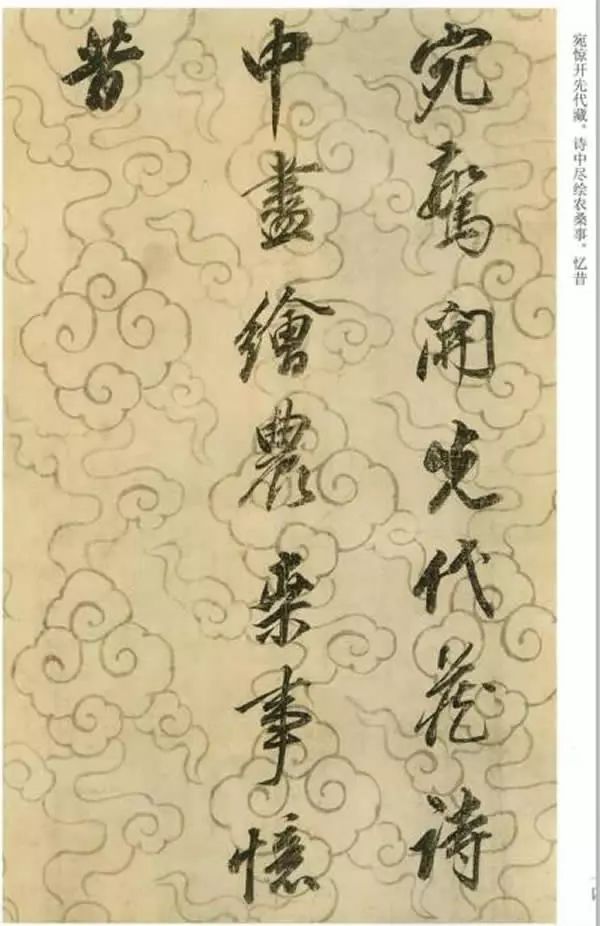 宛驚開先代藏詩
中盡繪農桒事憶
昔
宛惊开先代藏。诗中尽绘农桑事。忆昔